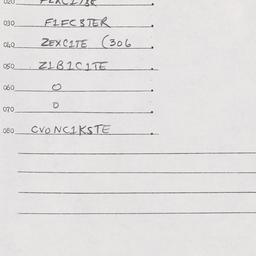 030 F1FC8TER
040 ZEXC1TE (306
050 Z1B1C1TE
060 O
070 O
080 CVONC1KSTE